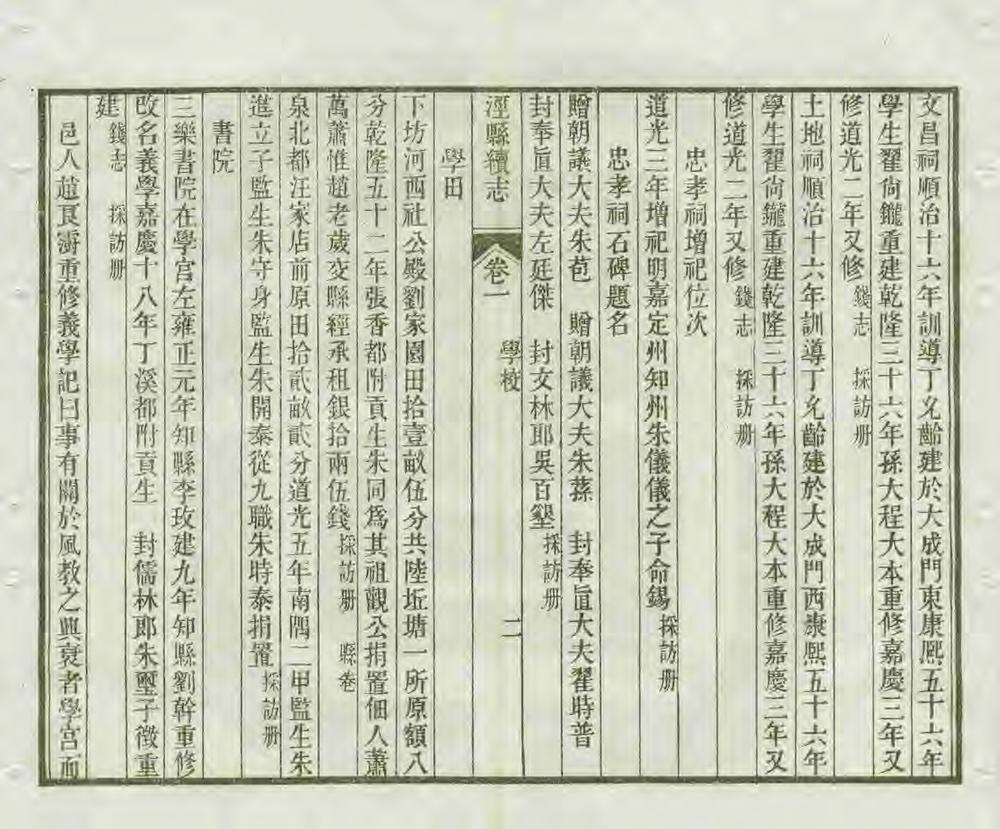 文昌祠順治十六年訓導丁允齡建於大成門東康熙五十六年
學生翟尙鑨重建乾隆三十六年孫大程大本重修嘉慶三年又
修道光二年又修 錢志 採訪册
土地祠順治十六年訓導丁允齡建於大成門西康熙五十六年
學生翟尙鑨重建乾隆三十六年孫大程大本重修嘉慶三年又
修道光二年又修 錢志 採訪册
忠孝祠增祀位次
道光三年增祀明嘉定州知州朱儀儀之子命錫 採訪册
忠孝祠石碑題名
贈朝議大夫朱苞 贈朝議大夫朱蓀 封奉直大夫翟時普
封奉直大夫左廷傑 封文林郎吳百墾 採訪册
涇縣續志 卷一 學校 二
學田
下坊河西社公殿劉家園田拾壹畝伍分共陸坵塘一所原額八
分乾隆五十二年張香都附貢生朱同爲其祖觀公捐置佃人蕭
萬蕭惟趙老歲交縣經承租銀拾兩伍錢 採訪册 縣卷
泉北都汪家店前原田拾貳畝貳分道光五年南隅二甲監生朱
進立子監生朱守身監生朱開泰從九職朱時泰捐置 採訪册
書院
三樂書院在學宮左雍正元年知縣李玫建九年知縣劉幹重修
改名義學嘉慶十八年丁溪都附貢生 封儒林郎朱璽子徴重
建 錢志 採訪册
邑人趙良澍重修義學記曰事有關於風教之興衰者學宮而